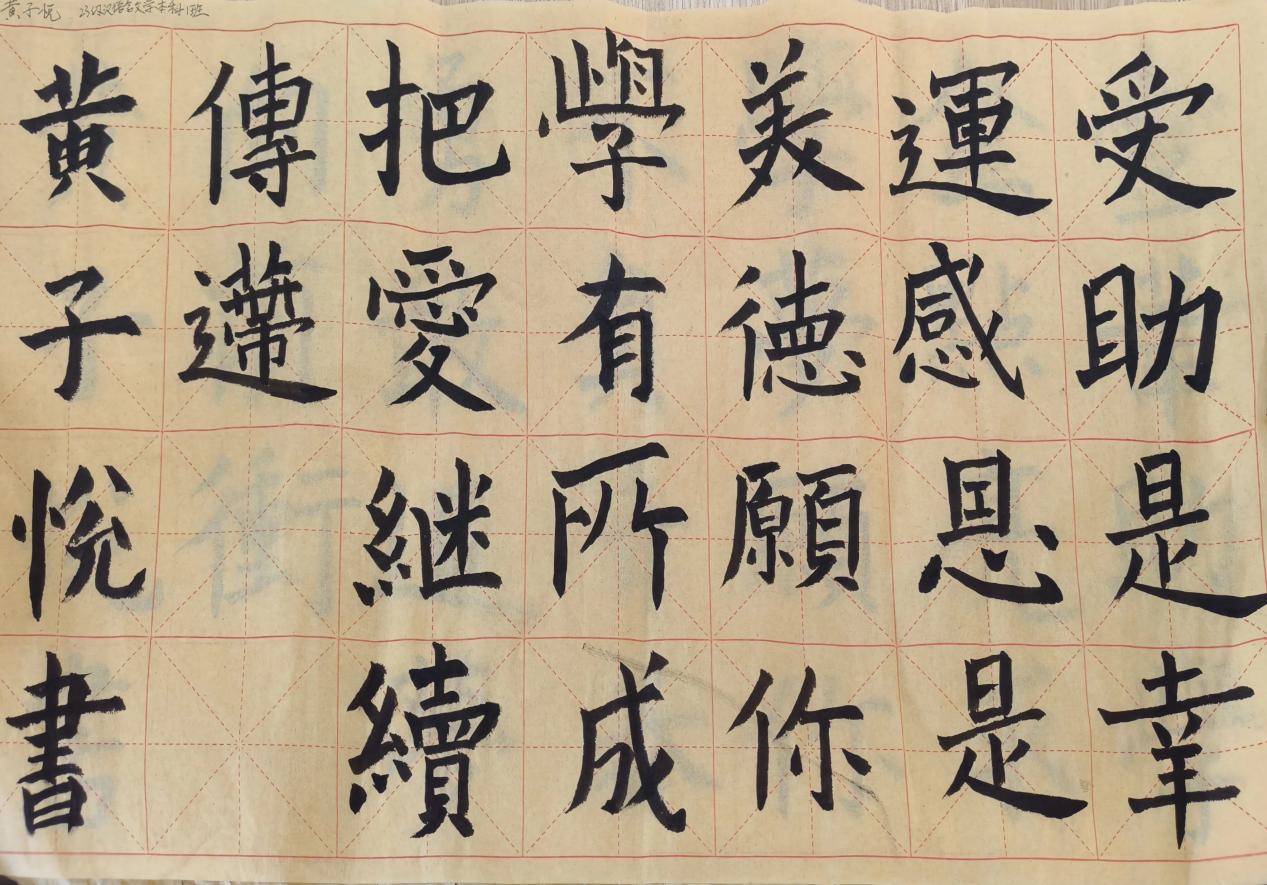 黄子悦 23级汉语言文学本科1班
受助是幸
運感恩是
美德願你
學有所成
把愛継續
傳遞
黄子悦書